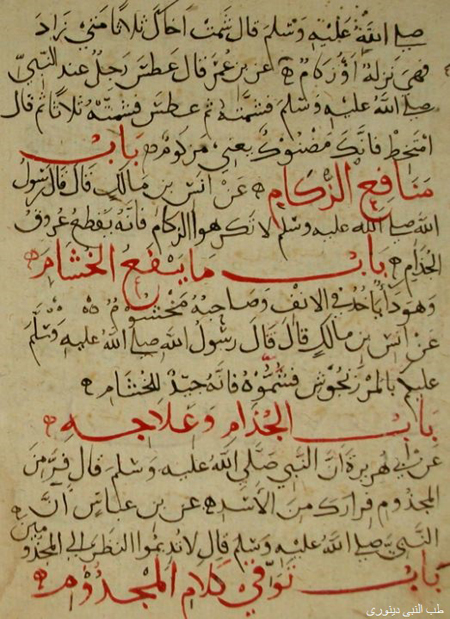 صلى الله عليه وسلم قال شمت اخاك ثلاثا فمن زاد
فهي نزلة أو زكام عن بن عمر قال عطس رجل عند النبي
صلى الله عليه وسلم فشمته ثم عطس فشمته ثلاثا ثم قال
امتخط فانك مضنوك يعني مزكوم باب
منافع الزكام عن انس بن مالك قال قال رسول
الله صلى الله عليه وسلم لا تكرهوا الزكام فانه يقطع عروق
الجذام باب ما ينفع الخشام
وهو دأ يأخذ في الانف وصاحبه مخشوم
عن انس بن مالك قال قال رسول الله صلى الله عليه وسلم
عليكم بالمرزنجوش فشموه فانه جيد للخشام
باب الجذام وعلاجه
عن ابي هريرة أن النبي صلى الله عليه وسلم قال فر من
المجذوم فرارك من الأسد عن بن عباس أن
النبي صلى الله عليه وسلم قال لا تديموا النظر إلى المجذومين
باب توقي كلام المجذوم
طب النبی دینوری